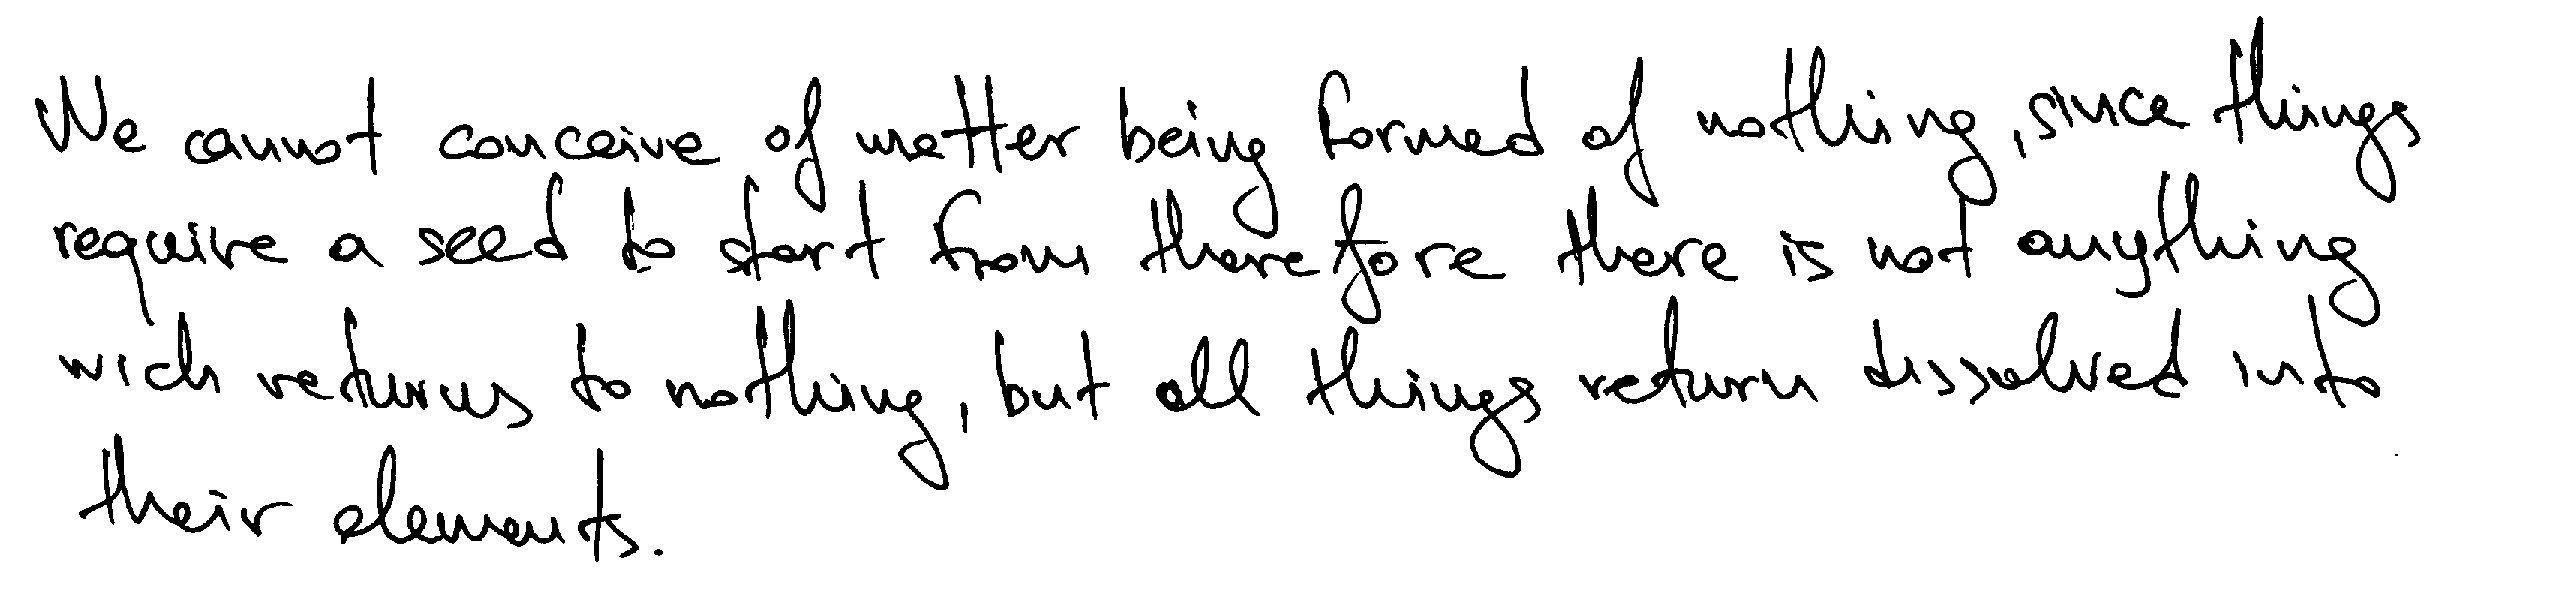 We cannot conceive of matter being formed of nothing, since things
require a seed to start from therefore there is not anything
wich returns to nothing, but all things return dissolved into
their elements.